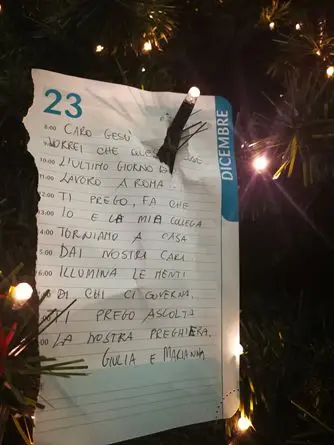 23
DICEMBRE
8:00 CARO GESÙ
VORREI CHE
10:00 L'ULTIMO GIORNO
11:00 LAVORO A ROMA.
TI PREGO, FA CHE
IO E LA MIA COLLEGA
TORNIAMO A CASA
DAI NOSTRI CARI
ILLUMINA LE MENTI
DI CHI CI GOVERNA.
TI PREGO ASCOLTA
LA NOSTRA PREGHIERA.
GIULIA E MARIANNA